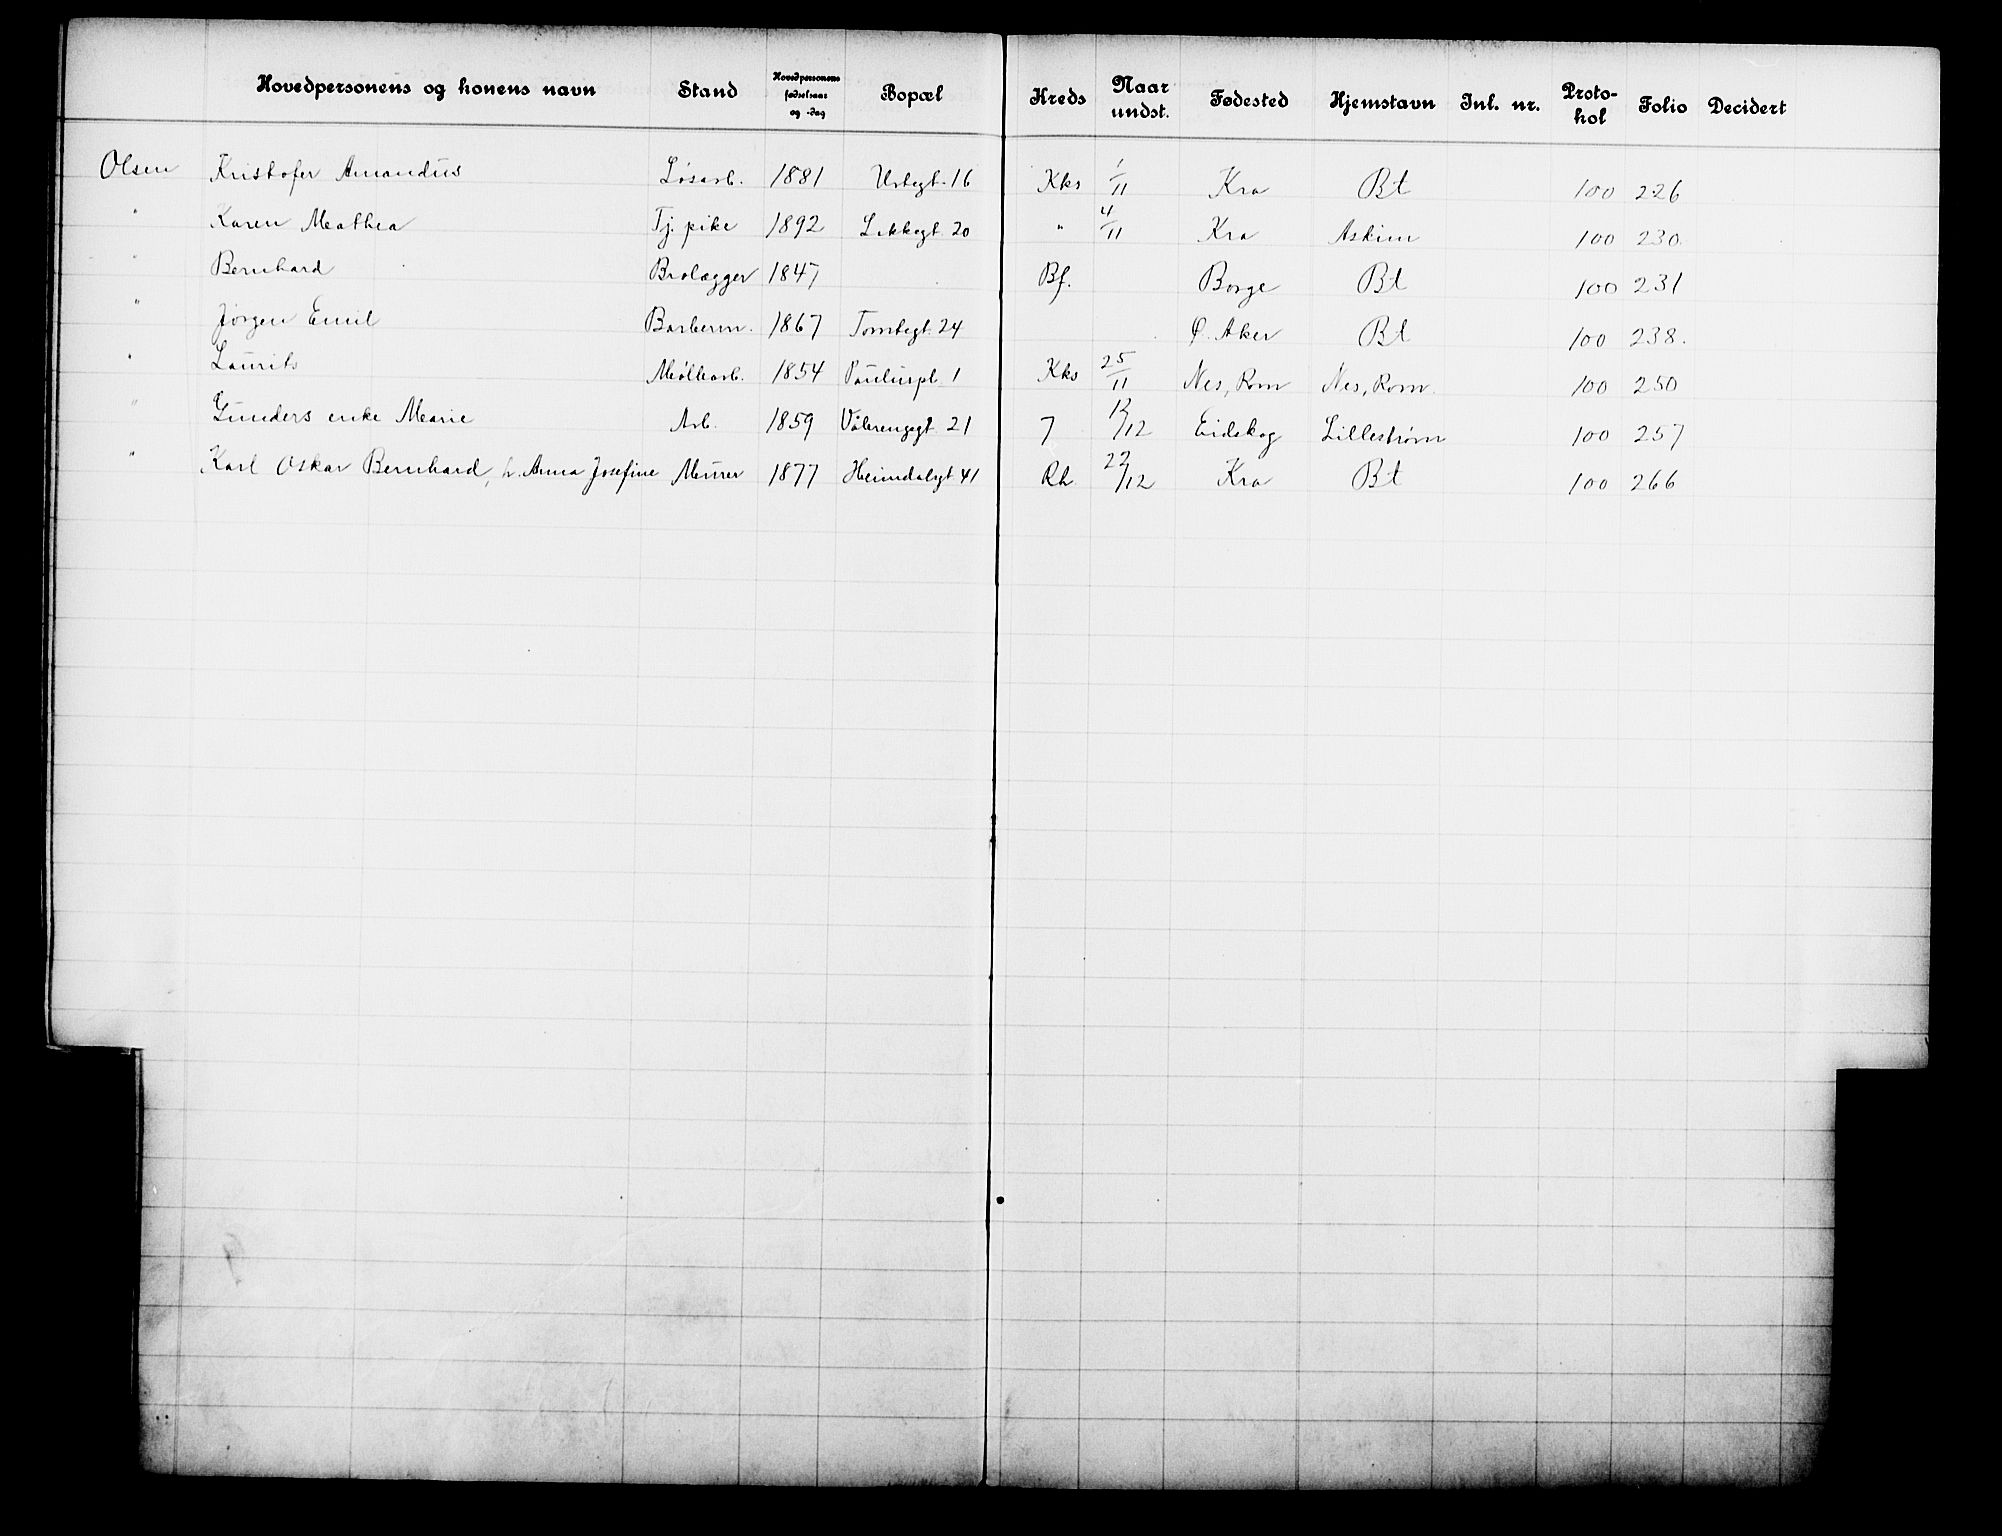 Hovedpersonens og konens navn Stand Hovedpersonens fødselsaar og -dag Bopæl Kreds Naar undst. Fødested Hjemstavn Inl. nr. Protokol Folio Decidert
Olsen Kristofer Amandus Løsarb. 1881 Urtegt. 16 Kks 1/11 Kra Bt 100 226
" Karen Mathea Tj. pike 1892 Lakkegt. 20 " 4/11 Kra Askim 100 230.
" Bernhard Brolægger 1847 Bf. Borge Bt 100 231
" Jørgen Emil Barberm. 1867 Tomtegt. 24 Ø. Aker Bt 100 238.
" Laurits Møllearb. 1854 Pauluspl. 1 Kks 25/11 Nes, Rom Nes, Rom. 100 250
" Gunders enke Marie Arb. 1859 Vålerengegt. 21 7 /12 Eidskog Lillestrøm 100 257
" Karl Oskar Bernhard, h. Anna Josefine Murer 1877 Heimdalsgt 41 Rh 22/12 Kra Bt 100 266